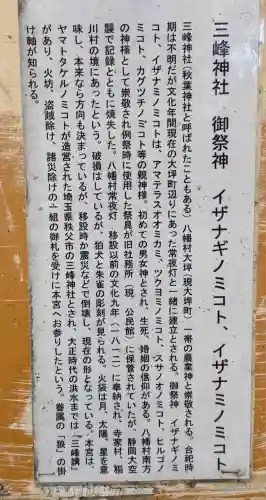 三峰神社　御祭神　イザナギノミコト　イザナミノミコト
三峰神社（秋葉神社と呼ばれたこともある）八幡村大坪（現大坪町）一帯の農業神と崇敬される。合祀時
期は不明だが文化年間現在の大坪町辺りにあった常夜灯と一緒に建立とされる。御祭神　イザナギノミ
コト、イザナミノミコトは、アマテラスオオミカミ、ツクヨミノミコト、スサノオノミコト、ヒルゴノ
ミコト、カグツチノミコト等の親神様。初めての男女神とされ、生死、婚姻の信仰がある。八幡村南方
の神様として崇敬され例祭時に使用した祭具が旧社務所（現　公民館）に保管されていたが、静岡大空
襲で記録とともに焼失した。八幡村常夜灯　移設以前の文化九年（一八一二）に奉納され、寺家村、稲
川村の境にあったという。破損はしているが、狛犬と朱雀の彫刻が見られる。火袋は月、太陽、星を意
味し、本来なら方向も決まっているが、移設時か震災などで倒壊し、現在の形となっている。本宮は、
ヤマトタケルノミコトが造営された埼玉県秩父市の三峰神社とされ、大正時代の洪水までは「三峰講」
があり、火坊、盗賊除け、諸災除けの一組の御札を受けに本宮へお参りしたという。眷属の「狼」の掛
け軸が知られる。